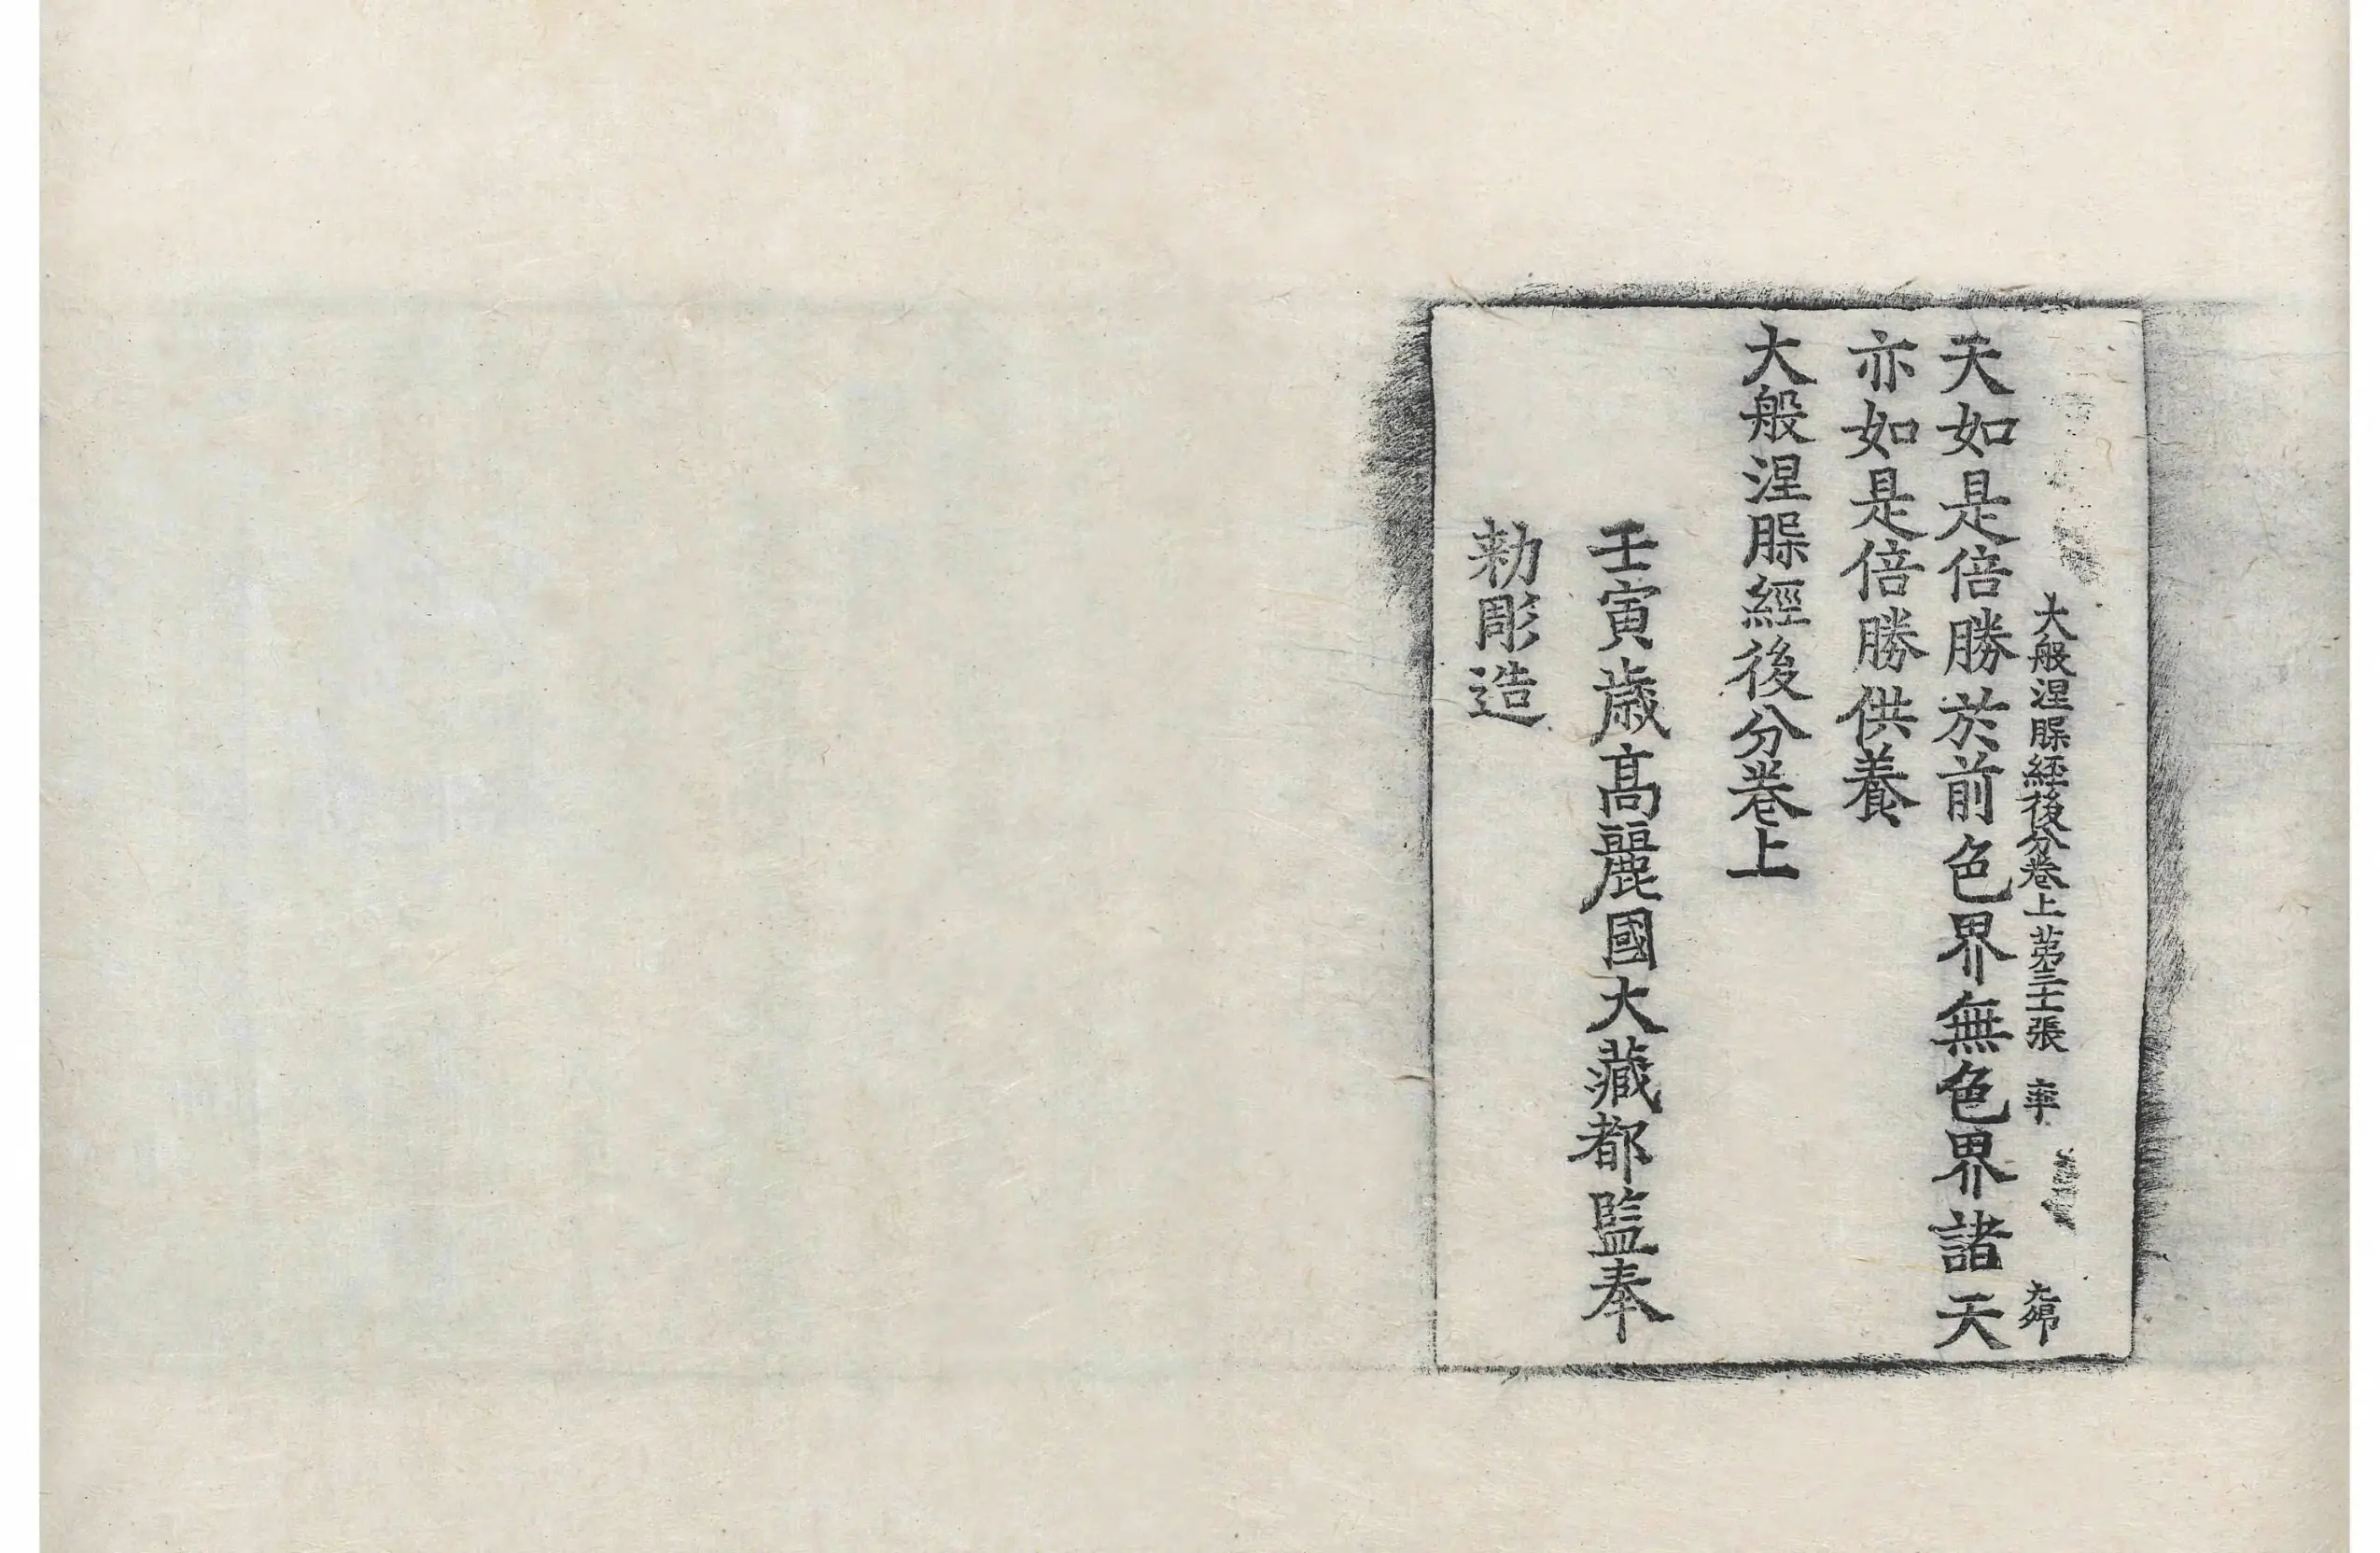 大般涅脲經後分卷上第二十張 率
天如是倍勝於前色界無色界諸天
亦如是倍勝供養
大般涅脲經後分卷上
壬寅歳髙麗國大藏都監奉
勅彫造